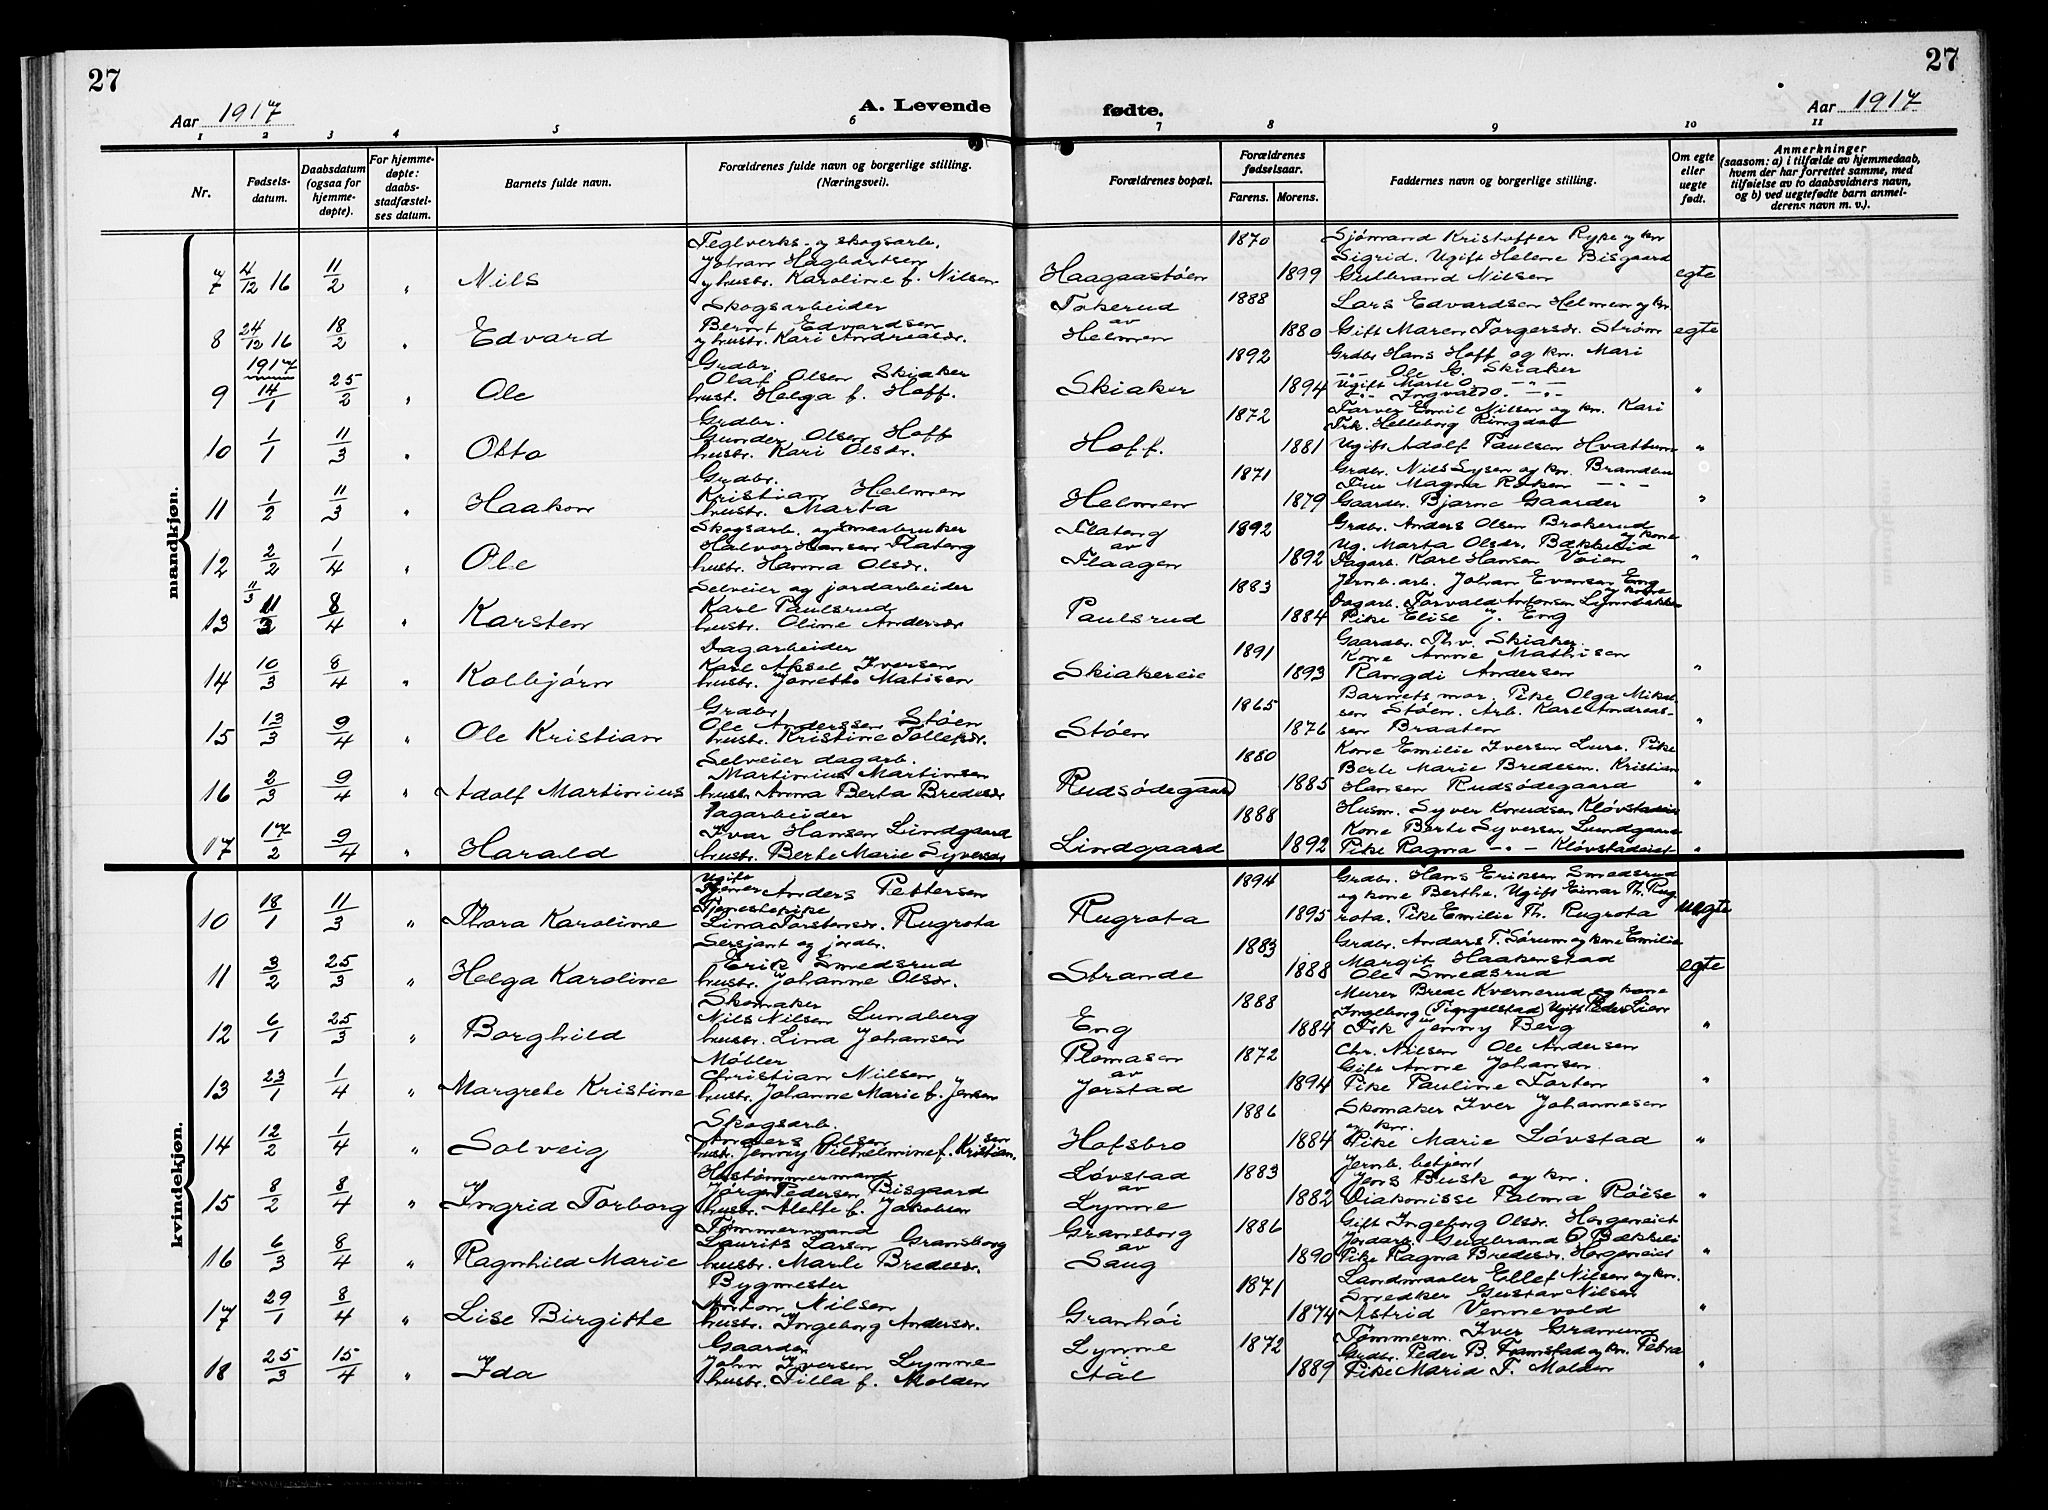 27
27
Aar 1917
A. Levende
fødte.
Aar 1917
1 2 3 4 5 6 7 8 9 10 11
Nr.
Fødsels-
datum.
Daabsdatum
(ogsaa for
hjemme-
døpte).
For hjemme-
døpte:
daabs-
stadfæstel-
ses datum.
Barnets fulde navn.
Forældrenes fulde navn og borgerlige stilling.
(Næringsvei).
Forældrenes bopæl.
Forældrenes
fødselsaar.
Farens. Morens.
Faddernes navn og borgerlige stilling.
Om egte
eller
uegte
født.
Anmerkninger
(saasom: a) i tilfælde av hjemmedaab,
hvem der har forrettet samme, med
tilføielse av to daabsvidners navn,
og b) ved uegtefødte barn anmel-
derens navn m. v.).
mandkjøn.
7 4/12 16 11/2 " Nils
Teglverks- og skogsarb.
Johan Hagbartsen
og hustr. Karoline f. Nilsen
Haagaastøen
1870
1899
Sjømand Kristoffer Rype og kn
Sigrid. Ugift Helene Bisgaard
Gulbrand Nilsen
egte
8 24/12 16 18/2 " Edvard
Skogsarbeider
Bernt Edvardsen
og hustr. Kari Andreasdr.
Tokerud
av
Helmen
1888
1880
Lars Edvardsen Helmen og kn
Gift Maren Torgersdr. Strøm
egte
1917
9 14/1 25/2 " Ole
Grdbr.
Olaf Olsen Skiaker
hust. Helga f. Hoff.
Skiaker
1892
1894
Grdbr Hans Hoff og kn. Mari
-"- Ole G. Skiaker
Ugift Marte O. -"-
-"- Ingvald O. -"-
"
10 1/1 11/3 " Otto
Grdbr.
Gunder Olsen Hoff
hustr. Kari Olsdr.
Hoff.
1872
1881
Farver Emil Nilsen og kn. Kari
Frk. Helleborg Ringdal
Ugift Adolf Paulsen Hvattum
"
11 1/2 11/3 " Haakon
Grdbr.
Kristian Helmen
hustr. Marta
Helmen
1871
1879
Grdbr. Nils Lysen og kn. Branden
Fru Magna Røken -"-
Gaardbr. Bjarne Gaarder
"
12 2/2 1/4 " Ole
Skogsarb. og smaabruker
Halvor Hansen Flateng
hustr. Hanna Olsdr.
Flateng
av
Flaagen
1892
1892
Grdbr. Anders Olsen Brokerud
og kone
Ug. Marta Olsdr. Bækkelid
Dagarb. Karl Hansen Voien
"
11/3
13 11/2 8/4 " Karsten
Selveier og jordarbeider
Karl Paulsrud
hustr. Oline Andersdr
Paulsrud
1883
1884
Jernb. arb. Johan Evensen Eng
og kone
Dagarb. Torvald Antonsen Lynnebakken
Pike Elise J. Eng
14 10/3 8/4 " Kolbjørn
Dagarbeider
Karl Aksel Iversen
hustr. Jonette Matisen
Skiakereie
1891
1893
Gaardbr. Th.v. Skiaker.
Kone Anne Mathisen
Rangdi Andersen
"
15 13/3 9/4 " Ole Kristian
Grdbr.
Ole Anderssen Støen
hustr. Kristine Tollefsdr.
Støen
1865
1876
Barnets mor. Pike Olga Mikal-
sen Støen. Arb. Karl Andreas-
sen Braaten
"
16 2/3 9/4 " Adolf Martinius
Selveier dagarb.
Martinius Martinsen
hustr. Anna Berta Bredesdr
Rudsødegaard
1880
1885
Kone Emilie Iversen Lure. Pike
Berte Marie Bredesen. Kristian
Hansen Rudsødegaard
"
17 17/2 9/4 " Harald
Dagarbeider
Ivar Hansen Lindgaard
hustr. Berte Marie Syversdr
Lindgaard
1888
1892
Husm. Syver Knudsen Kløvstadeie
Kone Berte Syversen Lundgaard
Pike Ragna -"- Kløvstadeiet
"
kvindekjøn.
10 18/1 11/3 " Thora Karoline
Ugift
Tjener Anders Pettersen
Tjenestepike
Lina Torstensdr. Rugrota
Rugrota
1894
1895
Grdbr. Hans Eriksen Smedsrud
og kone Berthe. Ugift Einar Th. Rug-
rota. Pike Emilie Th. Rugrota
uegte
11 3/2 25/3 " Helga Karoline
Sersjant og jordbr.
Erik Smedsrud
hustr. Johanne Olsdr.
Strande
1883
1888
Grdbr. Anders T. Sørum og kone Emilie
Margit Haakenstad
Ole Smedsrud
egte
12 6/1 25/3 " Borghild
Skomaker
Nils Nilsen Lundberg
hustr. Lina Johansen
Eng
1888
1884
Murer Brede Kværnerud og kone
Ingeborg (Tingelstad) Ugift Peder Lien
Frk Jenny Berg
"
13 23/1 1/4 " Margrete Kristine
Møller
Christian Nilsen
hustr. Johanne Marie f. Jensen
Plomasen
av
Jorstad
1872
1894
Chr. Nilsen Ole Andersen
Gift Anne Johansen.
Pike Pauline Forten
"
14 12/2 1/4 " Solveig
Skogsarb.
Anders Olsen
hustr. Jenny Vilhelmine f. Kristian-
sen
Hofsbro
1886
1884
Skomaker Iver Johannesen
og kn.
Pike Marie Løvstad
"
15 8/2 8/4 " Ingrid Torborg
Hustømmermand
Jørgen Pedersen Bisgaard
hustr. Alette f. Jakobsen
Løvstad
av
Lynne
1883
1882
Jernb. betjent
Jens Busk og kn.
Diakonisse Palma Røise
"
16 6/3 8/4 " Ragnhild Marie
Tømmermand
Laurits Larsen Gransborg
hustr. Marte Bredesdr.
Gransborg
av
Saug
1886
1890
Gift Ingeborg Olsdr. Hageneiet
Jordarb. Gudbrand O. Bækkeli
Pike Ragna Bredesdr. Hageneiet
"
17 29/1 8/4 " Lise Birgitte
Bygmester
Anton Nilsen
hustr. Ingeborg Andersdr.
Granhøi
1871
1874
Landmaaler Ellef Nilsen og kn.
Snedker Gustav Nilsen
Astrid Vennevold
"
18 25/3 15/4 " Ida
Gaardbr
John Iversen Lynne
hustr. Tilla f. Molden
Lynne
i
Tål
1872
1889
Tømmerm. Iver Granum
Grdbr. Peder B. Framstad og kn. Petra
Pike Maria T. Molden
"